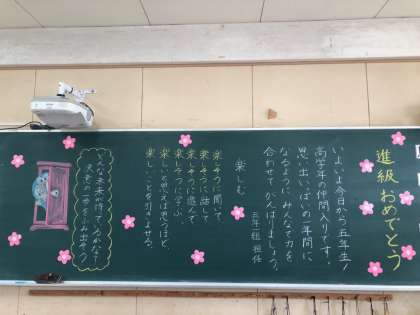 進級おめでとう
いよいよ今日から五年生!
高学年の仲間入りです。
思い出いっぱいの一年間に
なるように、みんなで力を
合わせてがんばりましょう。
五年 担任
楽しむ
楽しそうに聞いて
楽しそうに話して
楽しそうに遊んで
楽しそうに学ぶ。
楽しいと思えば思うほど、
楽しいことを引きよせる。
どんな未来が待ってるかな?
大きな一歩をふみ出そう